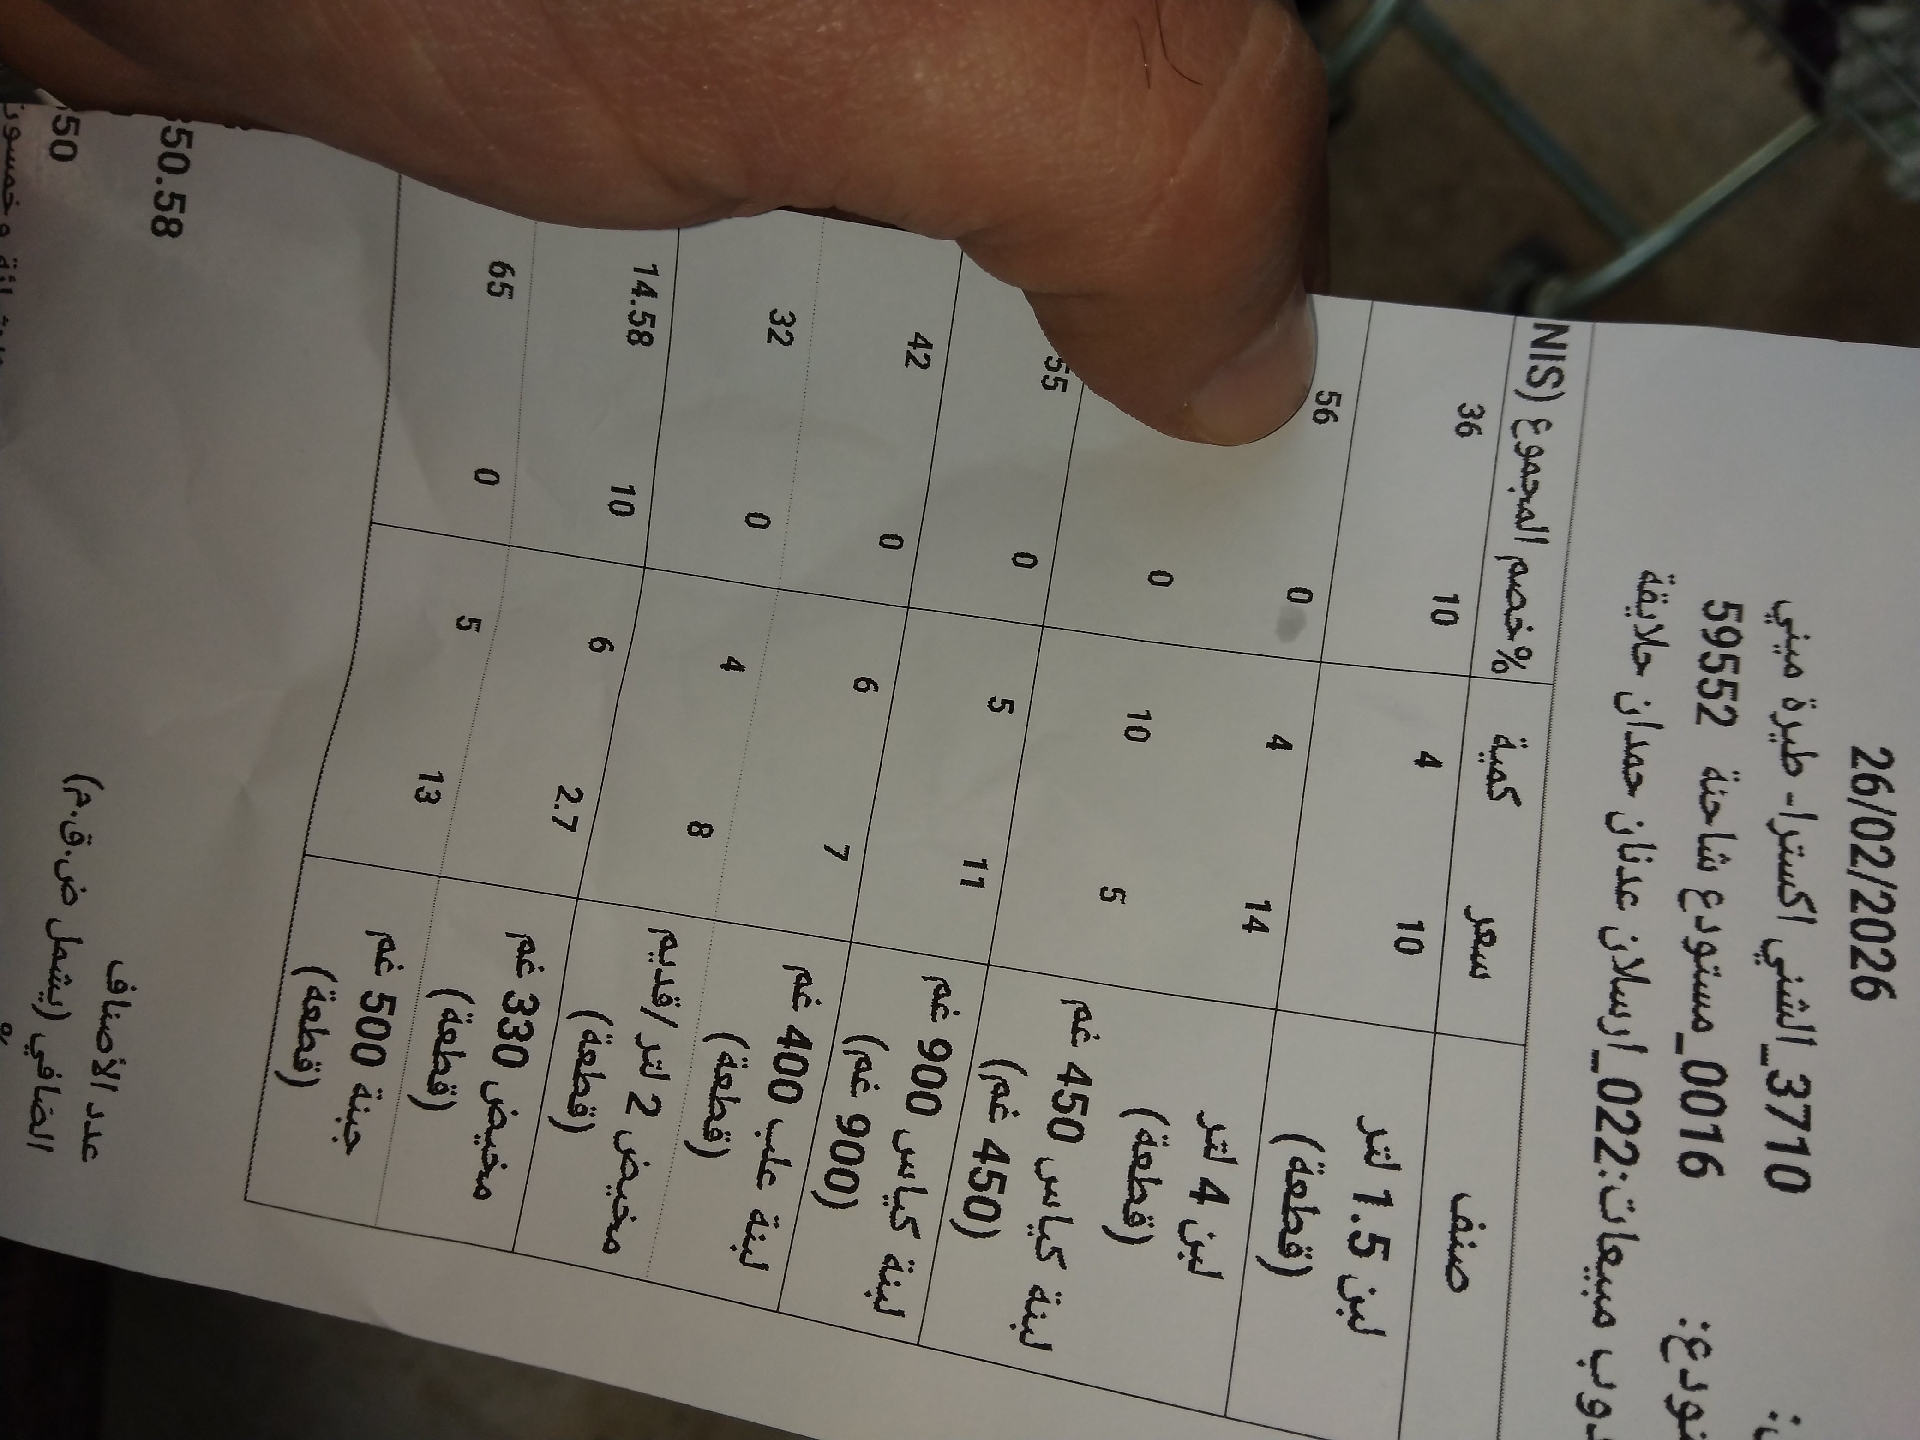 26/02/2026
3710_الشني اكسترا- طيرة ميني
0016_مستودع شاحنة 59552
022_ارسلان عدنان حمدان حلايقة
صنف سعر كمية %خصم المجموع (NIS
لبن 1.5 لتر 10 4 10 36
(قطعة)
لبن 4 لتر 14 4 0 56
(قطعة)
لبنة كياس 450 غم 5 10 0
(450 غم)
لبنة كياس 900 غم 11 5 0 55
(900 غم)
لبنة علب 400 غم 7 6 0 42
(قطعة)
مخيض 2 لتر /قديم 8 4 0 32
(قطعة)
مخيض 330 غم 2.7 6 10 14.58
(قطعة)
جبنة 500 غم 13 5 0 65
(قطعة)
عدد الأصناف
الصافي (يشمل ض.ق.م) 50.58
50